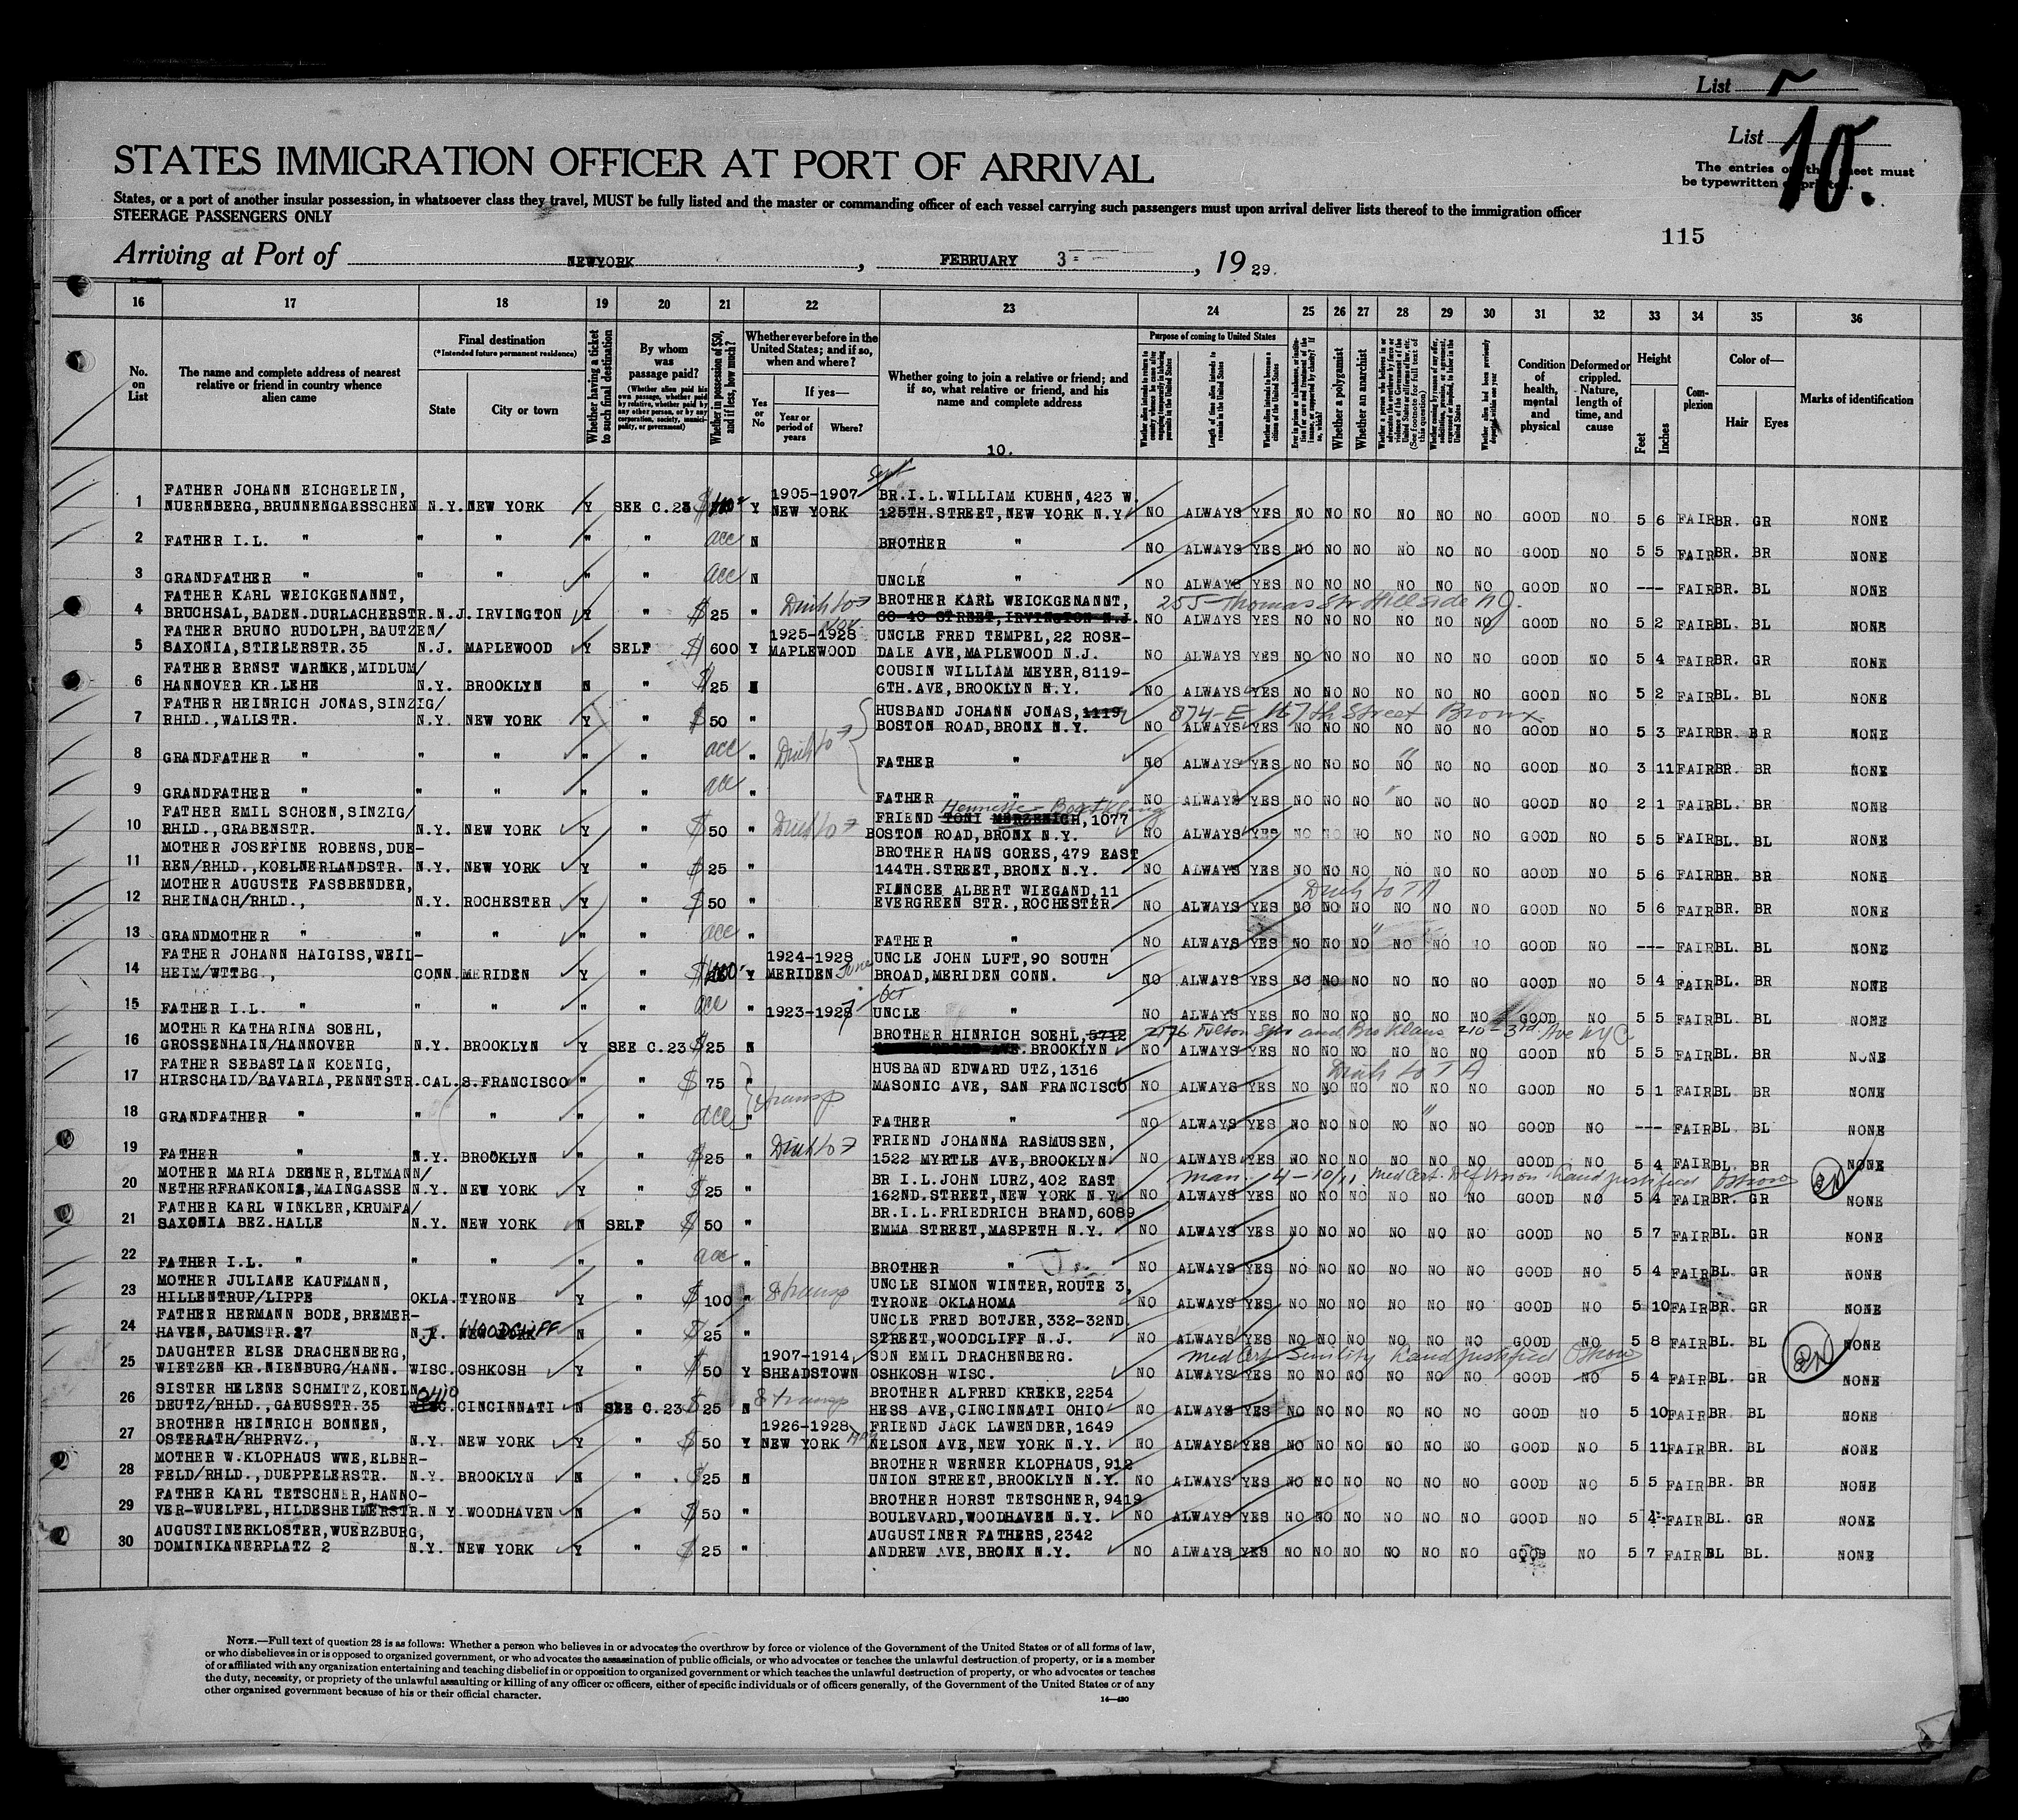 List
List 10.
The entries on this sheet must
be typewritten or printed.
STATES IMMIGRATION OFFICER AT PORT OF ARRIVAL
States, or a port of another insular possession, in whatsoever class they travel, MUST be fully listed and the master or commanding officer of each vessel carrying such passengers must upon arrival deliver lists thereof to the immigration officer
STEERAGE PASSENGERS ONLY
115
Arriving at Port of NEWYORK, FEBRUARY 3, 1929.
16 17 18 19 20 21 22 23 24 25 26 27 28 29 30 31 32 33 34 35 36
No. on List
The name and complete address of nearest relative or friend in country whence alien came
Final destination
(*Intended future permanent residence)
State
City or town
Whether having a ticket to such final destination
By whom was passage paid?
(Whether alien paid his own passage, whether paid by relative, whether paid by any other person, or by any corporation, society, municipality, or government)
Whether in possession of $50, and if less, how much?
Whether ever before in the United States; and if so, when and where?
Yes or No
If yes—
Year or period of years
Where?
Whether going to join a relative or friend; and if so, what relative or friend, and his name and complete address
10.
Purpose of coming to United States
Length of time alien intends to remain in the United States
Whether alien intends to become a citizen of the United States
Whether a polygamist
Whether an anarchist
Condition of health, mental and physical
Deformed or crippled. Nature, length of time, and cause
Height
Feet
Inches
Complexion
Color of—
Hair
Eyes
Marks of identification
1 FATHER JOHANN EICHGELEIN,
NUERNBERG, BRUNNENGAESSCHEN N.Y. NEW YORK Y SEE C.23 $ Y 1905-1907 Sept NEW YORK BR.I.L.WILLIAM KUEHN, 423 W.
125TH.STREET, NEW YORK N.Y. NO ALWAYS YES NO NO NO NO NO NO GOOD NO 5 6 FAIR BR. GR NONE
2 FATHER I.L. " " " " " acc N BROTHER " NO ALWAYS YES NO NO NO NO NO NO GOOD NO 5 5 FAIR BR. BR NONE
3 GRANDFATHER " " " " " acc N UNCLE " NO ALWAYS YES NO NO NO NO NO NO GOOD NO --- FAIR BR. BL NONE
4 FATHER KARL WEICKGENANNT,
BRUCHSAL, BADEN. DURLACHERSTR. N.J. IRVINGTON Y " $ 25 " BROTHER KARL WEICKGENANNT, 255 Thomas Str Hillside N.J.
60-40 STREET, IRVINGTON N.J. NO ALWAYS YES NO NO NO NO NO NO GOOD NO 5 2 FAIR BL. BL NONE
5 FATHER BRUNO RUDOLPH, BAUTZEN/
SAXONIA, STIELERSTR.35 N.J. MAPLEWOOD Y SELF $ 600 Y 1925-1928 Nov MAPLEWOOD UNCLE FRED TEMPEL, 22 ROSE-
DALE AVE, MAPLEWOOD N.J. NO ALWAYS YES NO NO NO NO NO NO GOOD NO 5 4 FAIR BR. GR NONE
6 FATHER ERNST WARNKE, MIDLUM/
HANNOVER KR.LEHE N.Y. BROOKLYN N " $ 25 N COUSIN WILLIAM MEYER, 8119-
6TH.AVE, BROOKLYN N.Y. NO ALWAYS YES NO NO NO NO NO NO GOOD NO 5 2 FAIR BL. BL NONE
7 FATHER HEINRICH JONAS, SINZIG/
RHLD., WALLSTR. N.Y. NEW YORK Y " $ 50 " HUSBAND JOHANN JONAS, 1119 874-E 167th Street Bronx
BOSTON ROAD, BRONX N.Y. NO ALWAYS YES NO NO NO NO NO NO GOOD NO 5 3 FAIR BR. BR NONE
8 GRANDFATHER " " " " " acc " FATHER " NO ALWAYS YES NO NO NO NO NO NO GOOD NO 3 11 FAIR BR. BR NONE
9 GRANDFATHER " " " " " acc " FATHER " NO ALWAYS YES NO NO NO NO NO NO GOOD NO 2 1 FAIR BL. BR NONE
10 FATHER EMIL SCHOEN, SINZIG/
RHLD., GRABENSTR. N.Y. NEW YORK Y " $ 50 " FRIEND TONI MERZENICH, 1077
BOSTON ROAD, BRONX N.Y. NO ALWAYS YES NO NO NO NO NO NO GOOD NO 5 5 FAIR BL. BL NONE
11 MOTHER JOSEFINE ROBENS, DUE-
REN/RHLD., KOELNERLANDSTR. N.Y. NEW YORK Y " $ 25 " BROTHER HANS GORES, 479 EAST
144TH.STREET, BRONX N.Y. NO ALWAYS YES NO NO NO NO NO NO GOOD NO 5 6 FAIR BR. BR NONE
12 MOTHER AUGUSTE FASSBENDER,
RHEINACH/RHLD., N.Y. ROCHESTER Y " $ 50 " FIANCEE ALBERT WIEGAND, 11
EVERGREEN STR., ROCHESTER NO ALWAYS YES NO NO NO NO NO NO GOOD NO 5 6 FAIR BR. BR NONE
13 GRANDMOTHER " " " " " acc " FATHER " NO ALWAYS YES NO NO NO NO NO NO GOOD NO --- FAIR BL. BL NONE
14 FATHER JOHANN HAIGISS, WEIL-
HEIM/WTTBG., CONN. MERIDEN Y " $ Y 1924-1928 MERIDEN June UNCLE JOHN LUFT, 90 SOUTH
BROAD, MERIDEN CONN. NO ALWAYS YES NO NO NO NO NO NO GOOD NO 5 4 FAIR BL. BR NONE
15 FATHER I.L. " " " " " acc 1923-1927 Oct UNCLE " NO ALWAYS YES NO NO NO NO NO NO GOOD NO 5 5 FAIR BL. BL NONE
16 MOTHER KATHARINA SOEHL,
GROSSENHAIN/HANNOVER N.Y. BROOKLYN Y SEE C.23 $ 25 N BROTHER HINRICH SOEHL, 5712
BROOKLYN NO ALWAYS YES NO NO NO NO NO NO GOOD NO 5 5 FAIR BL. BR NONE
17 FATHER SEBASTIAN KOENIG,
HIRSCHAID/BAVARIA, PENNTSTR. CAL. S.FRANCISCO " " $ 75 " HUSBAND EDWARD UTZ, 1316
MASONIC AVE, SAN FRANCISCO NO ALWAYS YES NO NO NO NO NO NO GOOD NO 5 1 FAIR BL BR NONE
18 GRANDFATHER " " " " " acc " transp FATHER " NO ALWAYS YES NO NO NO NO NO NO GOOD NO --- FAIR BL. BL NONE
19 FATHER " N.Y. BROOKLYN " " $ 25 " FRIEND JOHANNA RASMUSSEN,
1522 MYRTLE AVE, BROOKLYN NO ALWAYS YES NO NO NO NO NO NO GOOD NO 5 4 FAIR BL. BR NONE
20 MOTHER MARIA DEGNER, ELTMANN/
NETHERFRANKONIA, MAINGASSE N.Y. NEW YORK Y " $ 25 " BR I.L.JOHN LURZ, 402 EAST
162ND.STREET, NEW YORK N.Y. NO ALWAYS YES NO NO NO NO NO NO GOOD NO 5 4 FAIR BR. GR NONE
21 FATHER KARL WINKLER, KRUMFA/
SAXONIA BEZ.HALLE N.Y. NEW YORK N SELF $ 50 " BR.I.L.FRIEDRICH BRAND, 6089
EMMA STREET, MASPETH N.Y. NO ALWAYS YES NO NO NO NO NO NO GOOD NO 5 7 FAIR BL. GR NONE
22 FATHER I.L. " " " " " acc " BROTHER " NO ALWAYS YES NO NO NO NO NO NO GOOD NO 5 4 FAIR BL. GR NONE
23 MOTHER JULIANE KAUFMANN,
HILLENTRUP/LIPPE OKLA. TYRONE Y " $ 100 " UNCLE SIMON WINTER, ROUTE 3,
TYRONE OKLAHOMA NO ALWAYS YES NO NO NO NO NO NO GOOD NO 5 10 FAIR BR. GR NONE
24 FATHER HERMANN BODE, BREMER-
HAVEN, BAUMSTR.27 N.J. WOODCLIFF N " $ 25 " UNCLE FRED BOTJER, 332-32ND.
STREET, WOODCLIFF N.J. NO ALWAYS YES NO NO NO NO NO NO GOOD NO 5 8 FAIR BL. BL NONE
25 DAUGHTER ELSE DRACHENBERG,
WIETZEN KR.NIENBURG/HANN. WISC. OSHKOSH Y " $ 50 Y 1907-1914, SHEADSTOWN SON EMIL DRACHENBERG. Med Cert Senility
OSHKOSH WISC. NO ALWAYS YES NO NO NO NO NO NO GOOD NO 5 4 FAIR BL. GR NONE
26 SISTER HELENE SCHMITZ, KOELN
DEUTZ/RHLD., GAEUSSTR.35 OHIO CINCINNATI N SEE C.23 $ 25 N BROTHER ALFRED KREKE, 2254
HESS AVE, CINCINNATI OHIO NO ALWAYS YES NO NO NO NO NO NO GOOD NO 5 10 FAIR BR BL NONE
27 BROTHER HEINRICH BONNEN,
OSTERATH/RHPRVZ., N.Y. NEW YORK Y " $ 50 Y 1926-1928 NEW YORK FRIEND JACK LAWENDER, 1649
NELSON AVE, NEW YORK N.Y. NO ALWAYS YES NO NO NO NO NO NO GOOD NO 5 11 FAIR BR. BL NONE
28 MOTHER W.KLOPHAUS WWE, ELBER-
FELD/RHLD., DUEPPELERSTR. N.Y. BROOKLYN N " $ 25 N BROTHER WERNER KLOPHAUS, 912
UNION STREET, BROOKLYN N.Y. NO ALWAYS YES NO NO NO NO NO NO GOOD NO 5 5 FAIR BR. BR NONE
29 FATHER KARL TETSCHNER, HANNO-
VER-WUELFEL, HILDESHEIMERSTR. N Y. WOODHAVEN N " $ 50 " BROTHER HORST TETSCHNER, 9419
BOULEVARD, WOODHAVEN N.Y. NO ALWAYS YES NO NO NO NO NO NO GOOD NO 5 4 FAIR BL. GR NONE
30 AUGUSTINERKLOSTER, WUERZBURG,
DOMINIKANERPLATZ 2 N.Y. NEW YORK Y " $ 25 " AUGUSTINER FATHERS, 2342
ANDREW AVE, BRONX N.Y. NO ALWAYS YES NO NO NO NO NO NO GOOD NO 5 7 FAIR BL BL. NONE
NOTE.—Full text of question 28 is as follows: Whether a person who believes in or advocates the overthrow by force or violence of the Government of the United States or of all forms of law,
or who disbelieves in or is opposed to organized government, or who advocates the assassination of public officials, or who advocates or teaches the unlawful destruction of property, or is a member
of or affiliated with any organization entertaining and teaching disbelief in or opposition to organized government or which teaches the unlawful destruction of property, or who advocates or teaches
the duty, necessity, or propriety of the unlawful assaulting or killing of any officer or officers, either of specific individuals or of officers generally, of the Government of the United States or of any
other organized government because of his or their official character.
14—430